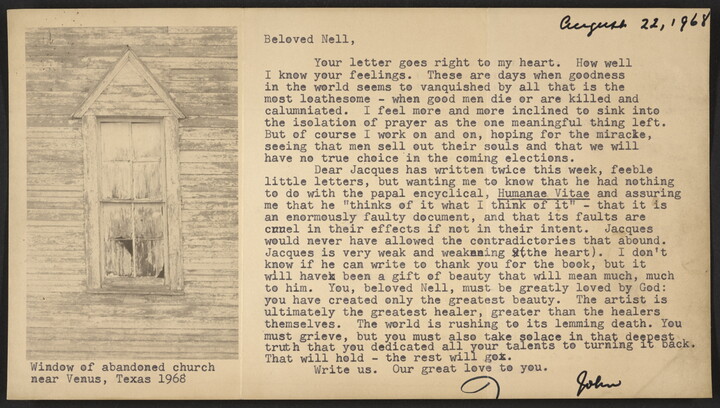 August 22, 1968
Beloved Nell,
Your letter goes right to my heart. How well
I know your feelings. These are days when goodness
in the world seems to vanquished by all that is the
most loathesome - when good men die or are killed and
calumniated. I feel more and more inclined to sink into
the isolation of prayer as the one meaningful thing left.
But of course I work on and on, hoping for the miracle,
seeing that men sell out their souls and that we will
have no true choice in the coming elections.
Dear Jacques has written twice this week, feeble
little letters, but wanting me to know that he had nothing
to do with the papal encyclical, Humanae Vitae and assuring
me that he "thinks of it what I think of it" - that it is
an enormously faulty document, and that its faults are
cruel in their effects if not in their intent. Jacques
would never have allowed the contradictories that abound.
Jacques is very weak and weakening (the heart). I don't
know if he can write to thank you for the book, but it
will have been a gift of beauty that will mean much, much
to him. You, beloved Nell, must be greatly loved by God:
you have created only the greatest beauty. The artist is
ultimately the greatest healer, greater than the healers
themselves. The world is rushing to its lemming death. You
must grieve, but you must also take solace in that deepest
truth that you dedicated all your talents to turning it back.
That will hold - the rest will go.
Write us. Our great love to you.
John
Window of abandoned church
near Venus, Texas 1968